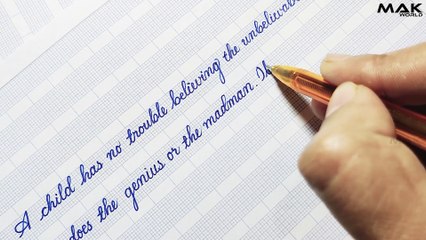 MAK
WORLD
A child has no trouble believing the
does the genius or the madman. It